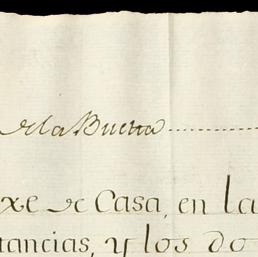 de la Buerta
xe de Casa, en la
tancias, y los do